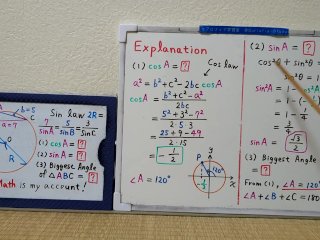 b=5
a=7
Sin law 2R=
7/sinA = 5/sinB = 3/sinC
(1) cosA = ?
(2) sinA = ?
(3) Biggest Angle
of △ABC = ?
O
R
Math is my account!
Explanation
(1) cosA = ?
Cos law
a² = b² + c² - 2bc cosA
cosA = (b² + c² - a²)/(2bc)
= (5² + 3² - 7²)/(2·5·3)
= (25 + 9 - 49)/(2·15)
= -1/2
∠A = 120°
P
y
x
120°
(2) sinA = ?
cos²θ + sin²θ
sin²θ = 1
sin²A = 1 -
= 1 - (
= 1 - 1/4
sinA = √3/2
(3) Biggest
= ?
From (1), ∠A = 120°
∠A + ∠B + ∠C = 180